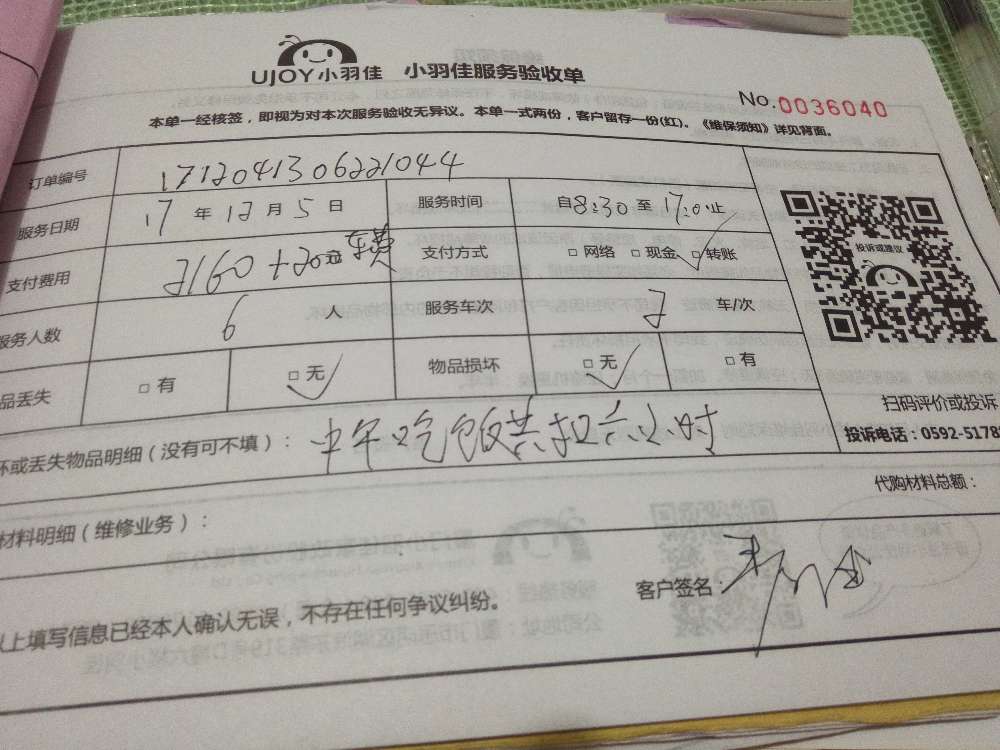 UJOY小羽佳 小羽佳服务验收单
No.0036040
本单一经核签，即视为对本次服务验收无异议。本单一式两份，客户留存一份(红)。《维保须知》详见背面。
订单编号 1712041306221044
服务日期 17 年 12 月 5 日 服务时间 自8:30 至 17:0 止
支付费用 2160+20元车费 支付方式 □ 网络 □ 现金 □ 转账
服务人数 6 人 服务车次 车/次
品丢失 □ 有 □ 无 物品损坏 □ 无 □ 有
投诉或建议
扫码评价或投诉
投诉电话：0592-5178
坏或丢失物品明细（没有可不填）： 中午吃饭共扣六小时
代购材料总额：
材料明细（维修业务）：
以上填写信息已经本人确认无误，不存在任何争议纠纷。
客户签名：